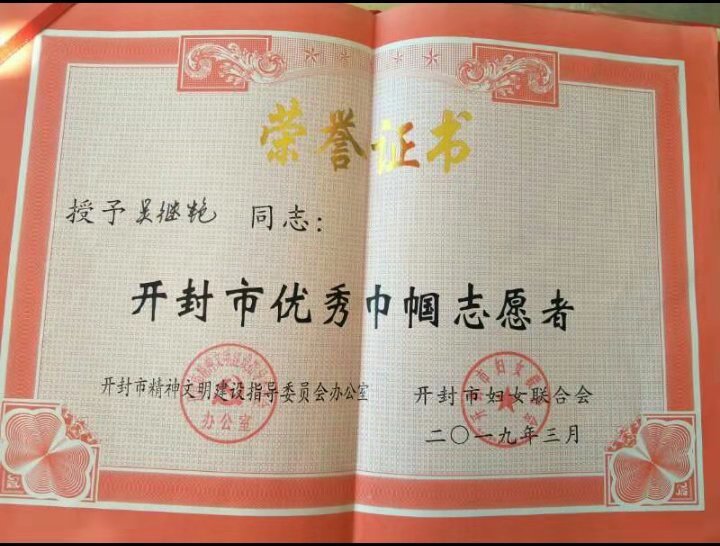 荣誉证书
授予吴继艳 同志：
开封市优秀巾帼志愿者
开封市精神文明建设指导委员会办公室
开封市妇女联合会
办公室
二〇一九年三月